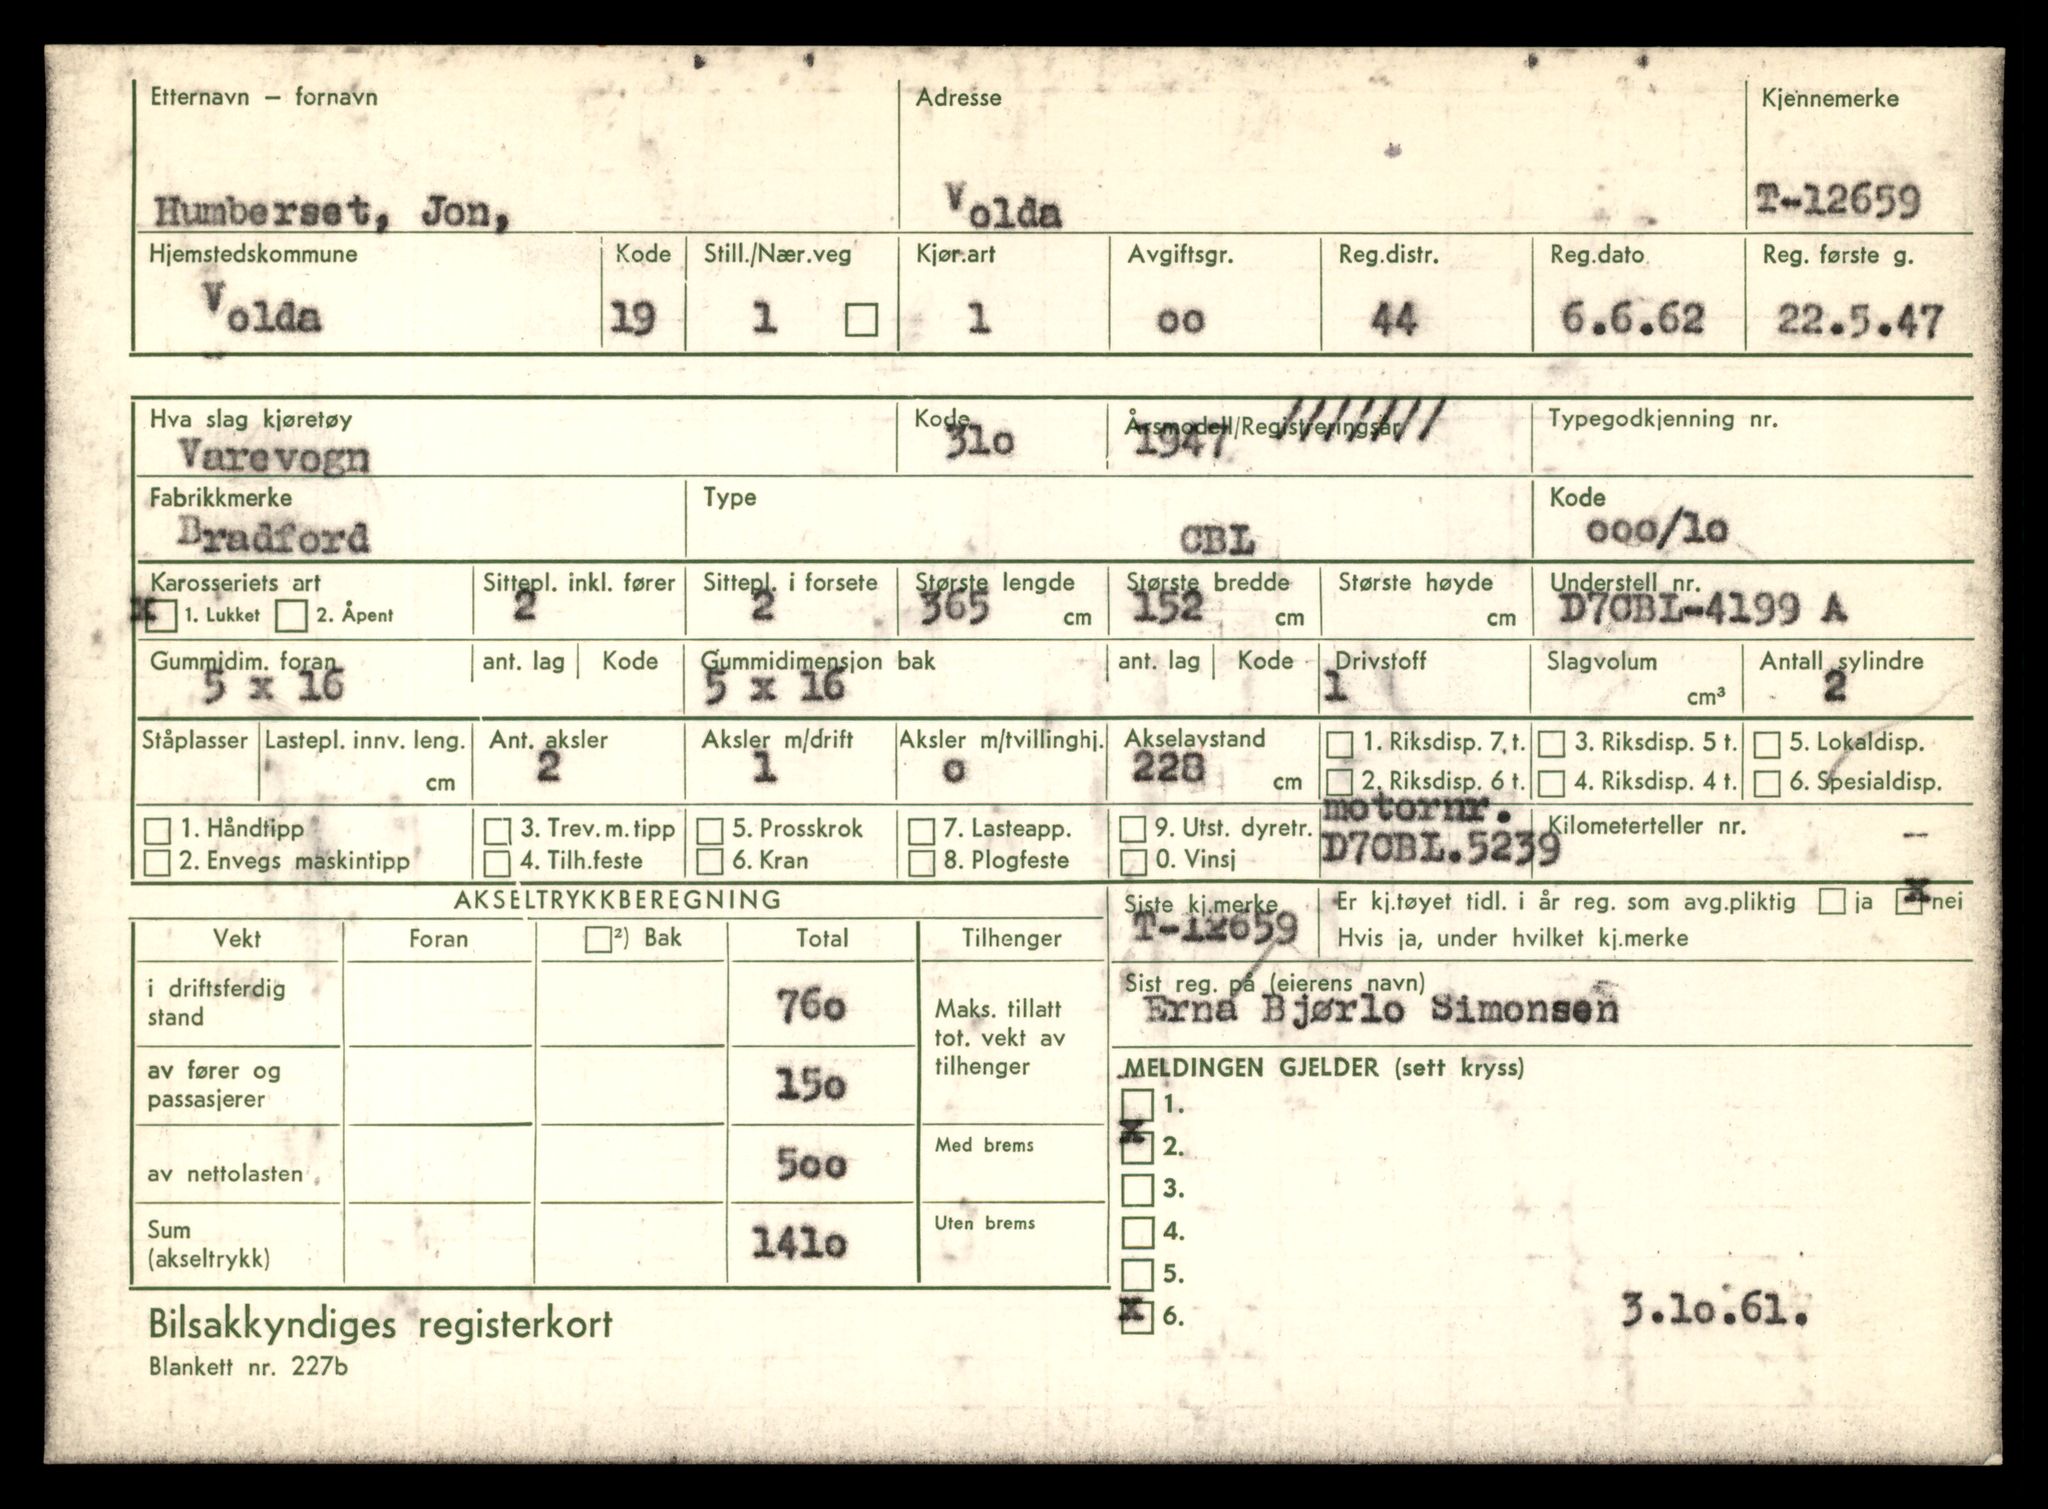 Etternavn — fornavn Adresse Kjennemerke
Humberset, Jon, Volda T-12659
Hjemstedskommune Kode Still./Nær.veg Kjør.art Avgiftsgr. Reg.distr. Reg.dato Reg. første g.
Volda 19 1 1 oo 44 6.6.62 22.5.47
Hva slag kjøretøy Kode Årsmodell/Registreringsår Typegodkjenning nr.
Varevogn 31o 1947 ///////
Fabrikkmerke Type Kode
Bradford CBL ooo/1o
Karosseriets art Sittepl. inkl. fører Sittepl. i forsete Største lengde Største bredde Største høyde Understell nr.
x 1. Lukket 2. Åpent 2 2 365 cm 152 cm cm D7CBL-4199 A
Gummidim. foran ant. lag Kode Gummidimensjon bak ant. lag Kode Drivstoff Slagvolum Antall sylindre
5 x 16 5 x 16 1 cm³ 2
Ståplasser Lastepl. innv. leng. Ant. aksler Aksler m/drift Aksler m/tvillinghj. Akselavstand 1. Riksdisp. 7 t. 3. Riksdisp. 5 t. 5. Lokaldisp.
cm 2 1 o 228 cm 2. Riksdisp. 6 t. 4. Riksdisp. 4 t. 6. Spesialdisp.
motornr.
1. Håndtipp 3. Trev. m. tipp 5. Prosskrok 7. Lasteapp. 9. Utst. dyretr. Kilometerteller nr. —
2. Envegs maskintipp 4. Tilh.feste 6. Kran 8. Plogfeste 0. Vinsj D7CBL.5239
AKSELTRYKKBEREGNING
Siste kj.merke Er kj.tøyet tidl. i år reg. som avg.pliktig ja x nei
T-12659 Hvis ja, under hvilket kj.merke
Vekt Foran ²) Bak Total Tilhenger
Sist reg. på (eierens navn)
Erna Bjørlo Simonsen
i driftsferdig
stand 760
Maks. tillatt
tot. vekt av
tilhenger
av fører og
passasjerer 15o
MELDINGEN GJELDER (sett kryss)
1.
x 2.
av nettolasten 5oo Med brems
3.
4.
Sum
(akseltrykk) 141o Uten brems
5.
x 6. 3.1o.61.
Bilsakkyndiges registerkort
Blankett nr. 227b